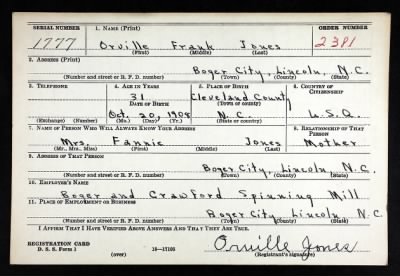 SERIAL NUMBER 1. NAME (Print) ORDER NUMBER
1777 Orville Frank Jones 2381
(First) (Middle) (Last)
2. ADDRESS (Print)
Boger City, Lincoln, N.C.
(Number and street or R. F. D. number) (Town) (County) (State)
3. TELEPHONE 4. AGE IN YEARS 5. PLACE OF BIRTH 6. COUNTRY OF CITIZENSHIP
31 Cleveland County
DATE OF BIRTH (Town or county)
Oct. 20, 1908 N.C. U.S.A.
(Exchange) (Number) (Mo.) (Day) (Yr.) (State or country)
7. NAME OF PERSON WHO WILL ALWAYS KNOW YOUR ADDRESS 8. RELATIONSHIP OF THAT PERSON
Mrs. Fannie Jones Mother
(Mr., Mrs., Miss) (First) (Middle) (Last)
9. ADDRESS OF THAT PERSON
Boger City, Lincoln N.C.
(Number and street or R. F. D. number) (Town) (County) (State)
10. EMPLOYER'S NAME
Boger and Crawford Spinning Mill
11. PLACE OF EMPLOYMENT OR BUSINESS
Boger City, Lincoln N.C.
(Number and street or R. F. D. number) (Town) (County) (State)
I AFFIRM THAT I HAVE VERIFIED ABOVE ANSWERS AND THAT THEY ARE TRUE.
REGISTRATION CARD
D. S. S. Form 1 16—17105 Orville Jones
(over) (Registrant's signature)